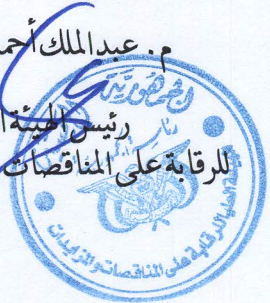 م. عبدالملك أحم
رئيس الهيئة ا
للرقابة على المناقصات
الجمهورية
العليا للرقابة على المناقصات والمزايدات